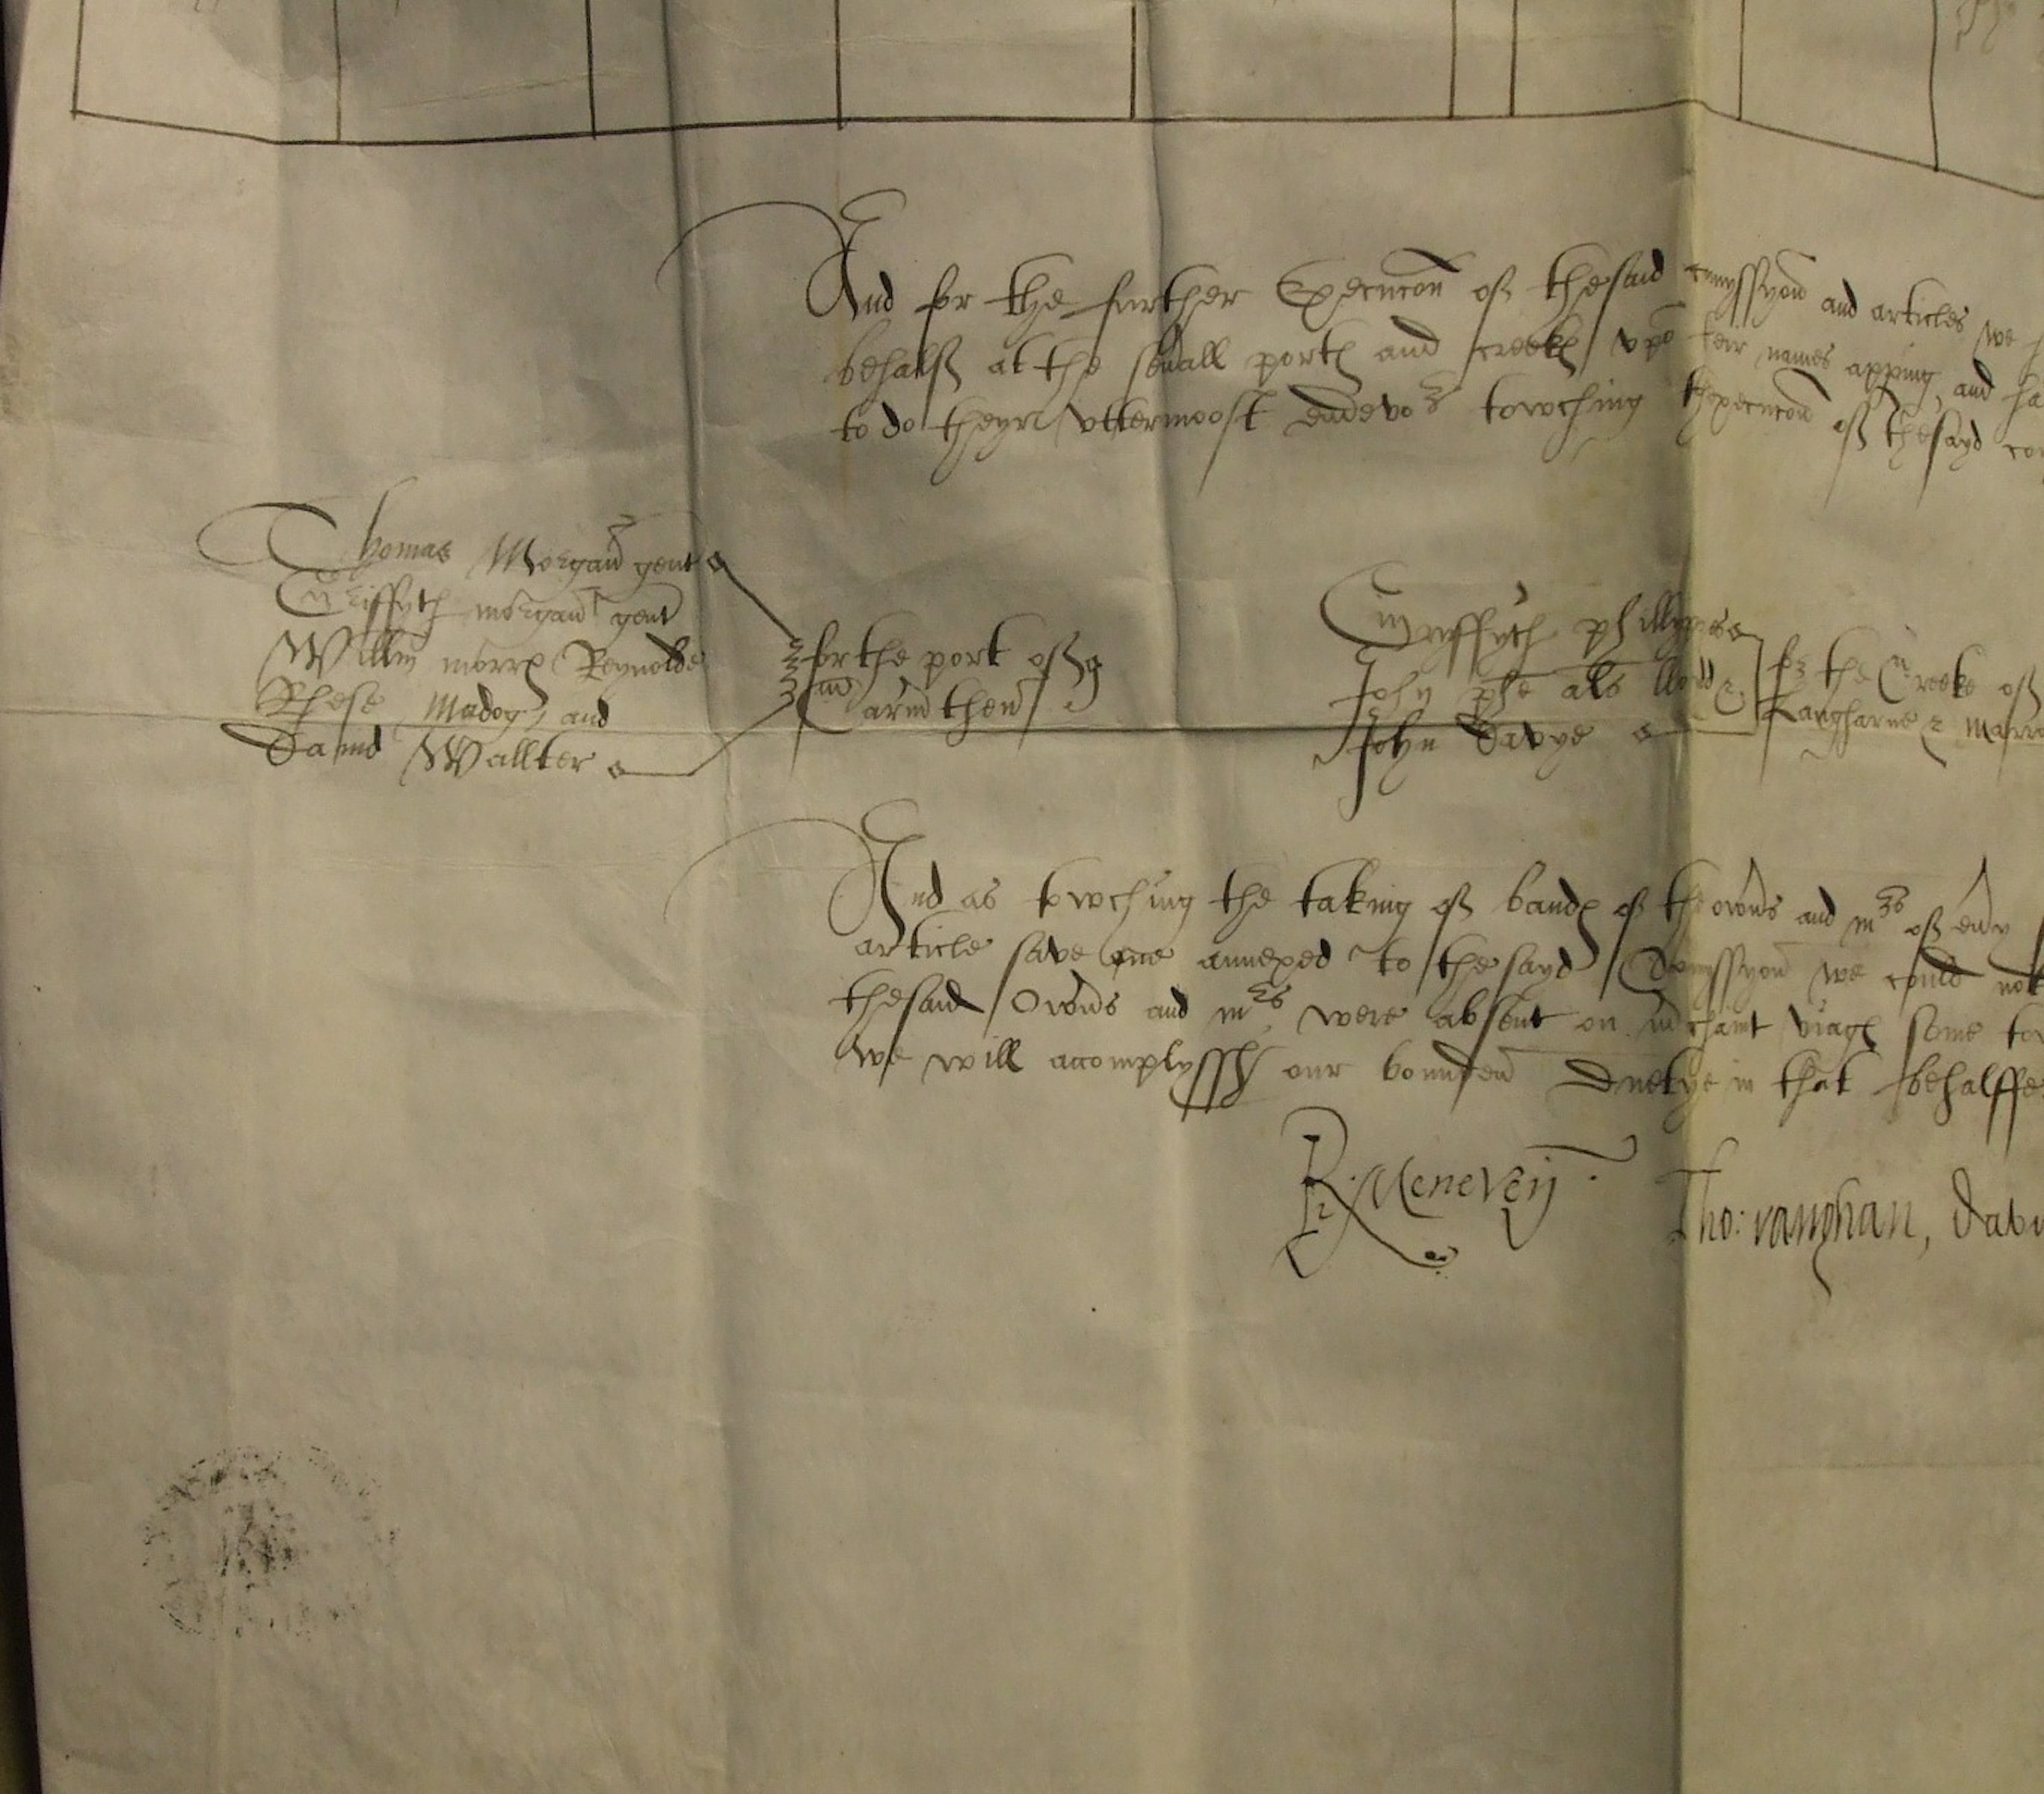 And for the further Execucon off thesaid comyssyon and articles we
behalff at the sevall portes and creekes upo their names apping, and ha
to do theyr uttermoost endevor towching thexecucon off thesayd co
Thomas Morgan gent
Griffyth morgan gent
Willm morrys Reynolde
Rhese Madog, and
David Wallter
for the port off
Carmthen
Gryffyth phillyppes
John phe als lloid
John Davye
for the Creeke off
Langharne & Marr
And as towching the taking off bandes off thowners and mrs off every
article save one annexed to thesayd Comyssyon we could not
thesaid Owners and mrs were absent on mchant viages some to
we will accomplyssh our bounden Duetye in that behalffe
R. Meneven. Tho: vaughan, Davi